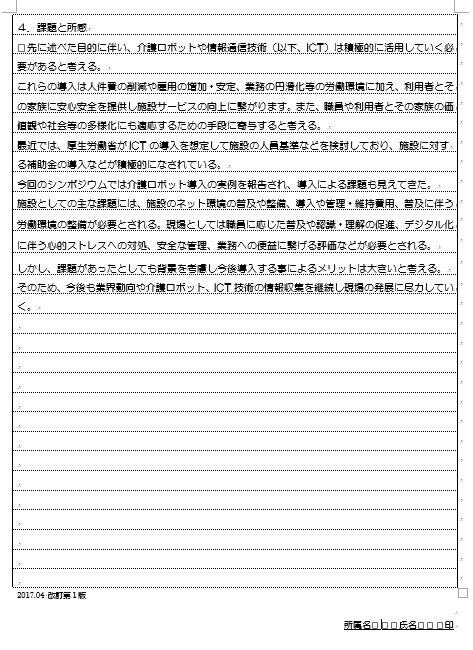 ４．課題と所感
□先に述べた目的に伴い、介護ロボットや情報通信技術（以下、ICT）は積極的に活用していく必
要があると考える。
これらの導入は人件費の削減や雇用の増加・安定、業務の円滑化等の労働環境に加え、利用者とそ
の家族に安心安全を提供し施設サービスの向上に繋がります。また、職員や利用者とその家族の価
値観や社会等の多様化にも適応するための手段に寄与すると考える。
最近では、厚生労働省がICTの導入を想定して施設の人員基準などを検討しており、施設に対す
る補助金の導入などが積極的になされている。
今回のシンポジウムでは介護ロボット導入の実例を報告され、導入による課題も見えてきた。
施設としての主な課題には、施設のネット環境の普及や整備、導入や管理・維持費用、普及に伴う
労働環境の整備が必要とされる。現場としては職員に応じた普及や認識・理解の促進、デジタル化
に伴う心的ストレスへの対処、安全な管理、業務への便益に繋げる評価などが必要とされる。
しかし、課題があったとしても背景を考慮し今後導入する事によるメリットは大きいと考える。
そのため、今後も業界動向や介護ロボット、ICT技術の情報収集を継続し現場の発展に尽力してい
く。
2017.04 改訂第１版
所属名□□□氏名□□□印